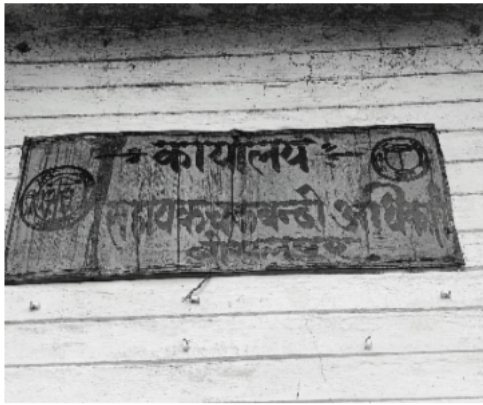 कार्यालय
सहायक चकबन्दी अधिकारी